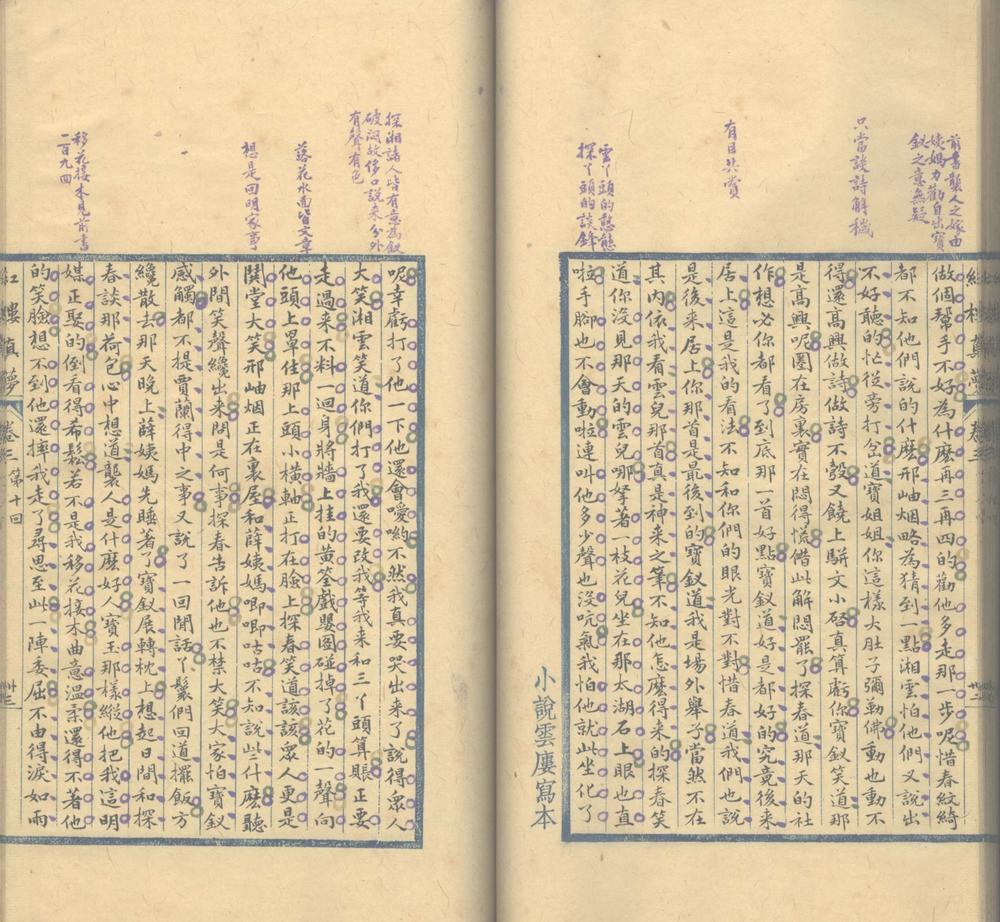 前書襲人之嫁由
姨媽力勸自出寶
釵之意無疑
只當談詩解穢
有目共賞
雲丫頭的憨態
探丫頭的談鋒
做個幫手不好為什麼再三再四的勸他多走那一步呢惜春紋綺
都不知他們說的什麼邢岫烟略為猜到一點湘雲怕他們又說出
不好聽的忙從旁打岔道寶姐姐你這樣大肚子彌勒佛動也動不
得還高興做詩做詩不彀又饒上駢文小啓真算虧你寶釵笑道那
是高興呢圈在房裏實在悶得慌借此解悶罷了探春道那天的社
作想必你都看了到底那一首好點寶釵道好是都好的究竟後來
居上這是我的看法不知和你們的眼光對不對惜春道我們也說
是後來居上你那首是最後到的寶釵道我是場外舉子當然不在
其內依我看雲兒那首真是神來之筆不知他怎麼得來的探春笑
道你沒見那天的雲兒哪拏著一枝花兒坐在那太湖石上眼也直
啦手腳也不會動啦連叫他多少聲也沒吭氣我怕他就此坐化了
小說雲廔寫本
探湘諸人皆有意為釵
破悶故侈口說來分外
有聲有色
落花水面皆文章
想是回明家事
移花接木見前書
一百九四
呢幸虧打了他一下他還會噯喲不然我真要哭出來了說得眾人
大笑湘雲笑道你們打了我還要改我等我來和三丫頭算賬正要
走過來不料一迴身將牆上挂的黄筌戲嬰圖碰掉了花的一聲向
他頭上罩住那上頭小橫軸正打在臉上探春笑道該該眾人更是
鬨堂大笑邢岫烟正在裏屋和薛姨媽唧唧咕咕不知說些什麼聽
外間笑聲纔出來問是何事探春告訴他也不禁大笑大家怕寶釵
感觸都不提賈蘭得中之事又說了一回閒話丫鬟們回道擺飯方
纔散去那天晚上薛姨媽先睡著了寶釵展轉枕上想起日間和探
春談那荷包心中想道襲人是什麼好人寶玉那樣縱他把我這明
媒正娶的倒看得希鬆若不是我移花接木曲意溫柔還得不著他
的笑臉想不到他還摔我走了尋思至此一陣委屈不由得淚如雨
紅樓真夢
卷三
第十回